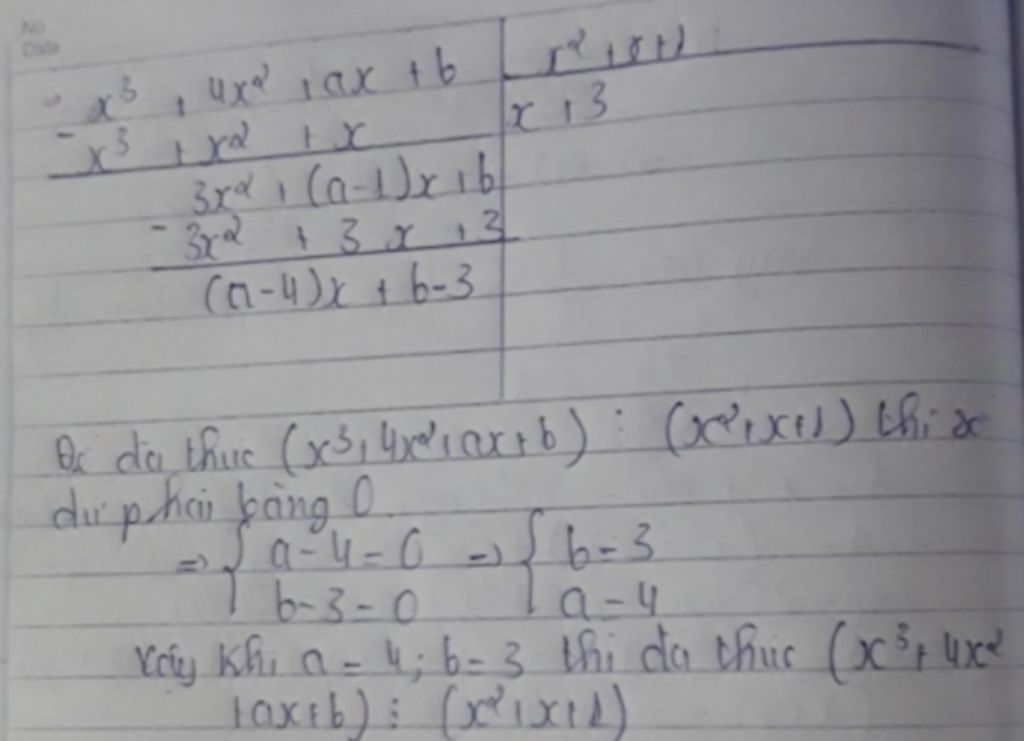 No
Date
x³ + 4x² + ax + b | x² + x + 1
- x³ + x² + x | x + 3
3x² + (a-1)x + b
- 3x² + 3x + 3
(a-4)x + b-3
đa thức (x³ + 4x² + ax + b) ⋮ (x² + x + 1) thì
dư phải bằng 0.
=> { a-4=0 => { b=3
b-3=0 a=4
Vậy khi a = 4; b = 3 thì đa thức (x³ + 4x²
+ax+b) ⋮ (x² + x + 1)